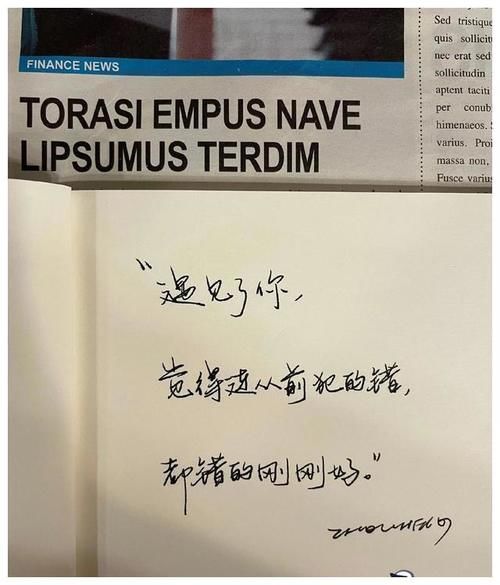 FINANCE NEWS
TORASI EMPUS NAVE
LIPSUMUS TERDIM
Sed tristique
quis sollicit
nec erat sed
sollicitudin
aptent taciti
per conub
himenaeos.
varius. Proi
massa non,
Fusce varius
“遇见了你，
觉得连从前犯的错，
都错的刚刚好。”